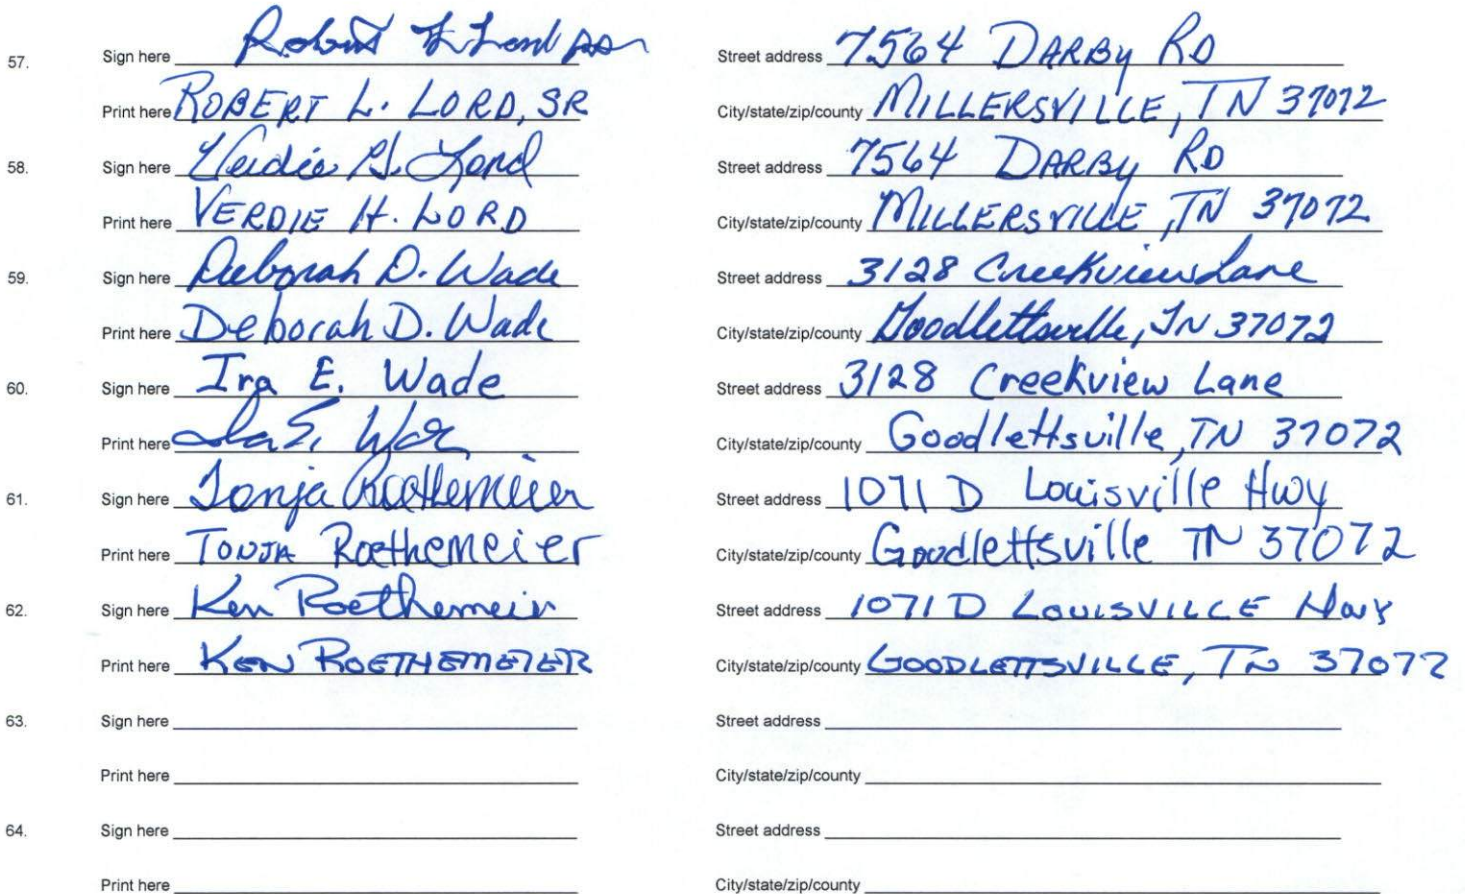 57. Sign here Robert L Lord Sr Street address 7564 DARBY RD
Print here ROBERT L. LORD, SR City/state/zip/county MILLERSVILLE, TN 37072
58. Sign here Verdie H. Lord Street address 7564 DARBY RD
Print here VERDIE H. LORD City/state/zip/county MILLERSVILLE, TN 37072
59. Sign here Deborah D. Wade Street address 3128 Creekview Lane
Print here Deborah D. Wade City/state/zip/county Goodlettsville, TN 37072
60. Sign here Ira E. Wade Street address 3128 Creekview Lane
Print here Ira E. Wade City/state/zip/county Goodlettsville, TN 37072
61. Sign here Tonja Roethemeier Street address 1071 D Louisville Hwy
Print here TONJA Roethemeier City/state/zip/county Goodlettsville TN 37072
62. Sign here Ken Roethemeier Street address 1071 D LOUISVILLE Hwy
Print here KEN ROETHEMEIER City/state/zip/county GOODLETTSVILLE, TN 37072
63. Sign here Street address
Print here City/state/zip/county
64. Sign here Street address
Print here City/state/zip/county